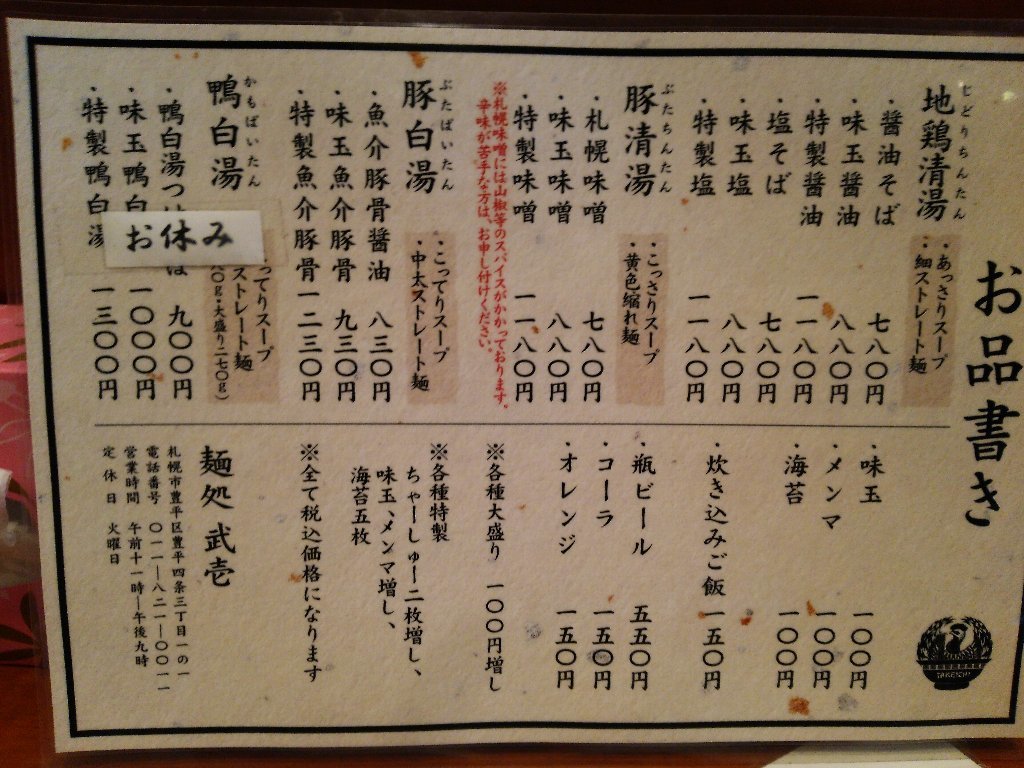 お品書き
じどりちんたん
地鶏清湯
・あっさりスープ
・細ストレート麺
・醤油そば 七八〇円
・味玉醤油 八八〇円
・特製醤油 一一八〇円
・塩そば 七八〇円
・味玉塩 八八〇円
・特製塩 一一八〇円
ぶたちんたん
豚清湯
・こっさりスープ
・黄色縮れ麺
・札幌味噌 七八〇円
・味玉味噌 八八〇円
・特製味噌 一一八〇円
※札幌味噌には山椒等のスパイスがかかっております。
辛味が苦手な方は、お申し付けください。
ぶたぱいたん
豚白湯
・こってりスープ
・中太ストレート麺
・魚介豚骨醤油 八三〇円
・味玉魚介豚骨 九三〇円
・特製魚介豚骨 一二三〇円
かもぱいたん
鴨白湯
ってりスープ
ストレート麺
〇g・大盛り二七〇g)
・鴨白湯つけ ば 九〇〇円
・味玉鴨白 一〇〇〇円
・特製鴨白湯 一三〇〇円
お休み
・味玉 一〇〇円
・メンマ 一〇〇円
・海苔 一〇〇円
・炊き込みご飯 一五〇円
・瓶ビール 五五〇円
・コーラ 一五〇円
・オレンジ 一五〇円
※各種大盛り 一〇〇円増し
※各種特製
ちゃーしゅー二枚増し、
味玉、メンマ増し、
海苔五枚
※全て税込価格になります
麺処 武壱
札幌市豊平区豊平四条三丁目一の一
電話番号 〇一一―八二一―〇〇一一
営業時間 午前十一時―午後九時
定休日 火曜日
TAKEICHI